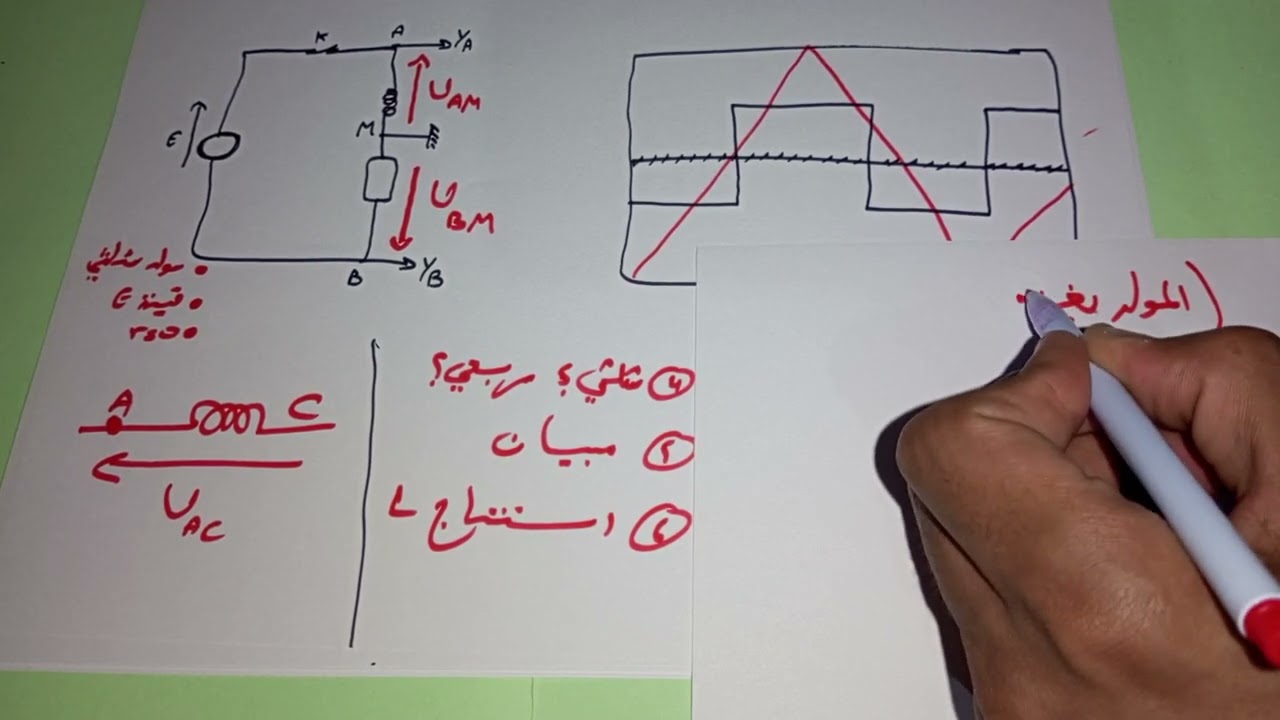 K
A
Y_A
E
U_AM
M
U_BM
B
Y_B
• مولد مثلثي
• قيمة E
• r=0
A
C
U_AC
④ مثلثي؟ مربعي؟
⑤ مبيان
⑥ استنتاج L
المولد